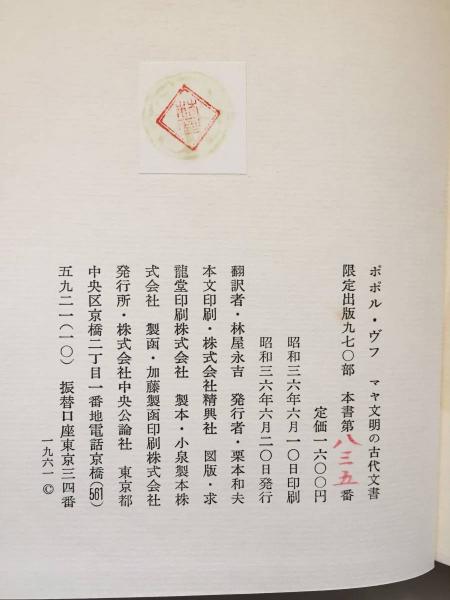 ポポル・ヴフ　マヤ文明の古代文書
限定出版九七〇部　本書第八三五番
定価一六〇〇円
昭和三六年六月一〇日印刷
昭和三六年六月二〇日発行
翻訳者・林屋永吉　発行者・栗本和夫
本文印刷・株式会社精興社　図版・求
龍堂印刷株式会社　製本・小泉製本株
式会社　製函・加藤製函印刷株式会社
発行所・株式会社中央公論社　東京都
中央区京橋二丁目一番地電話京橋(561)
五九二一(一〇)　振替口座東京三四番
一九六一©